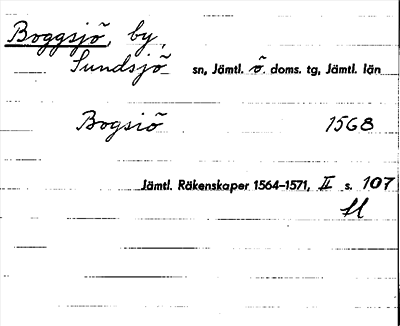 Boggsjö, by,
Sundsjö sn, Jämtl. ö. doms. tg, Jämtl. län
Bogsiö 1568
Jämtl. Räkenskaper 1564–1571, II s. 107